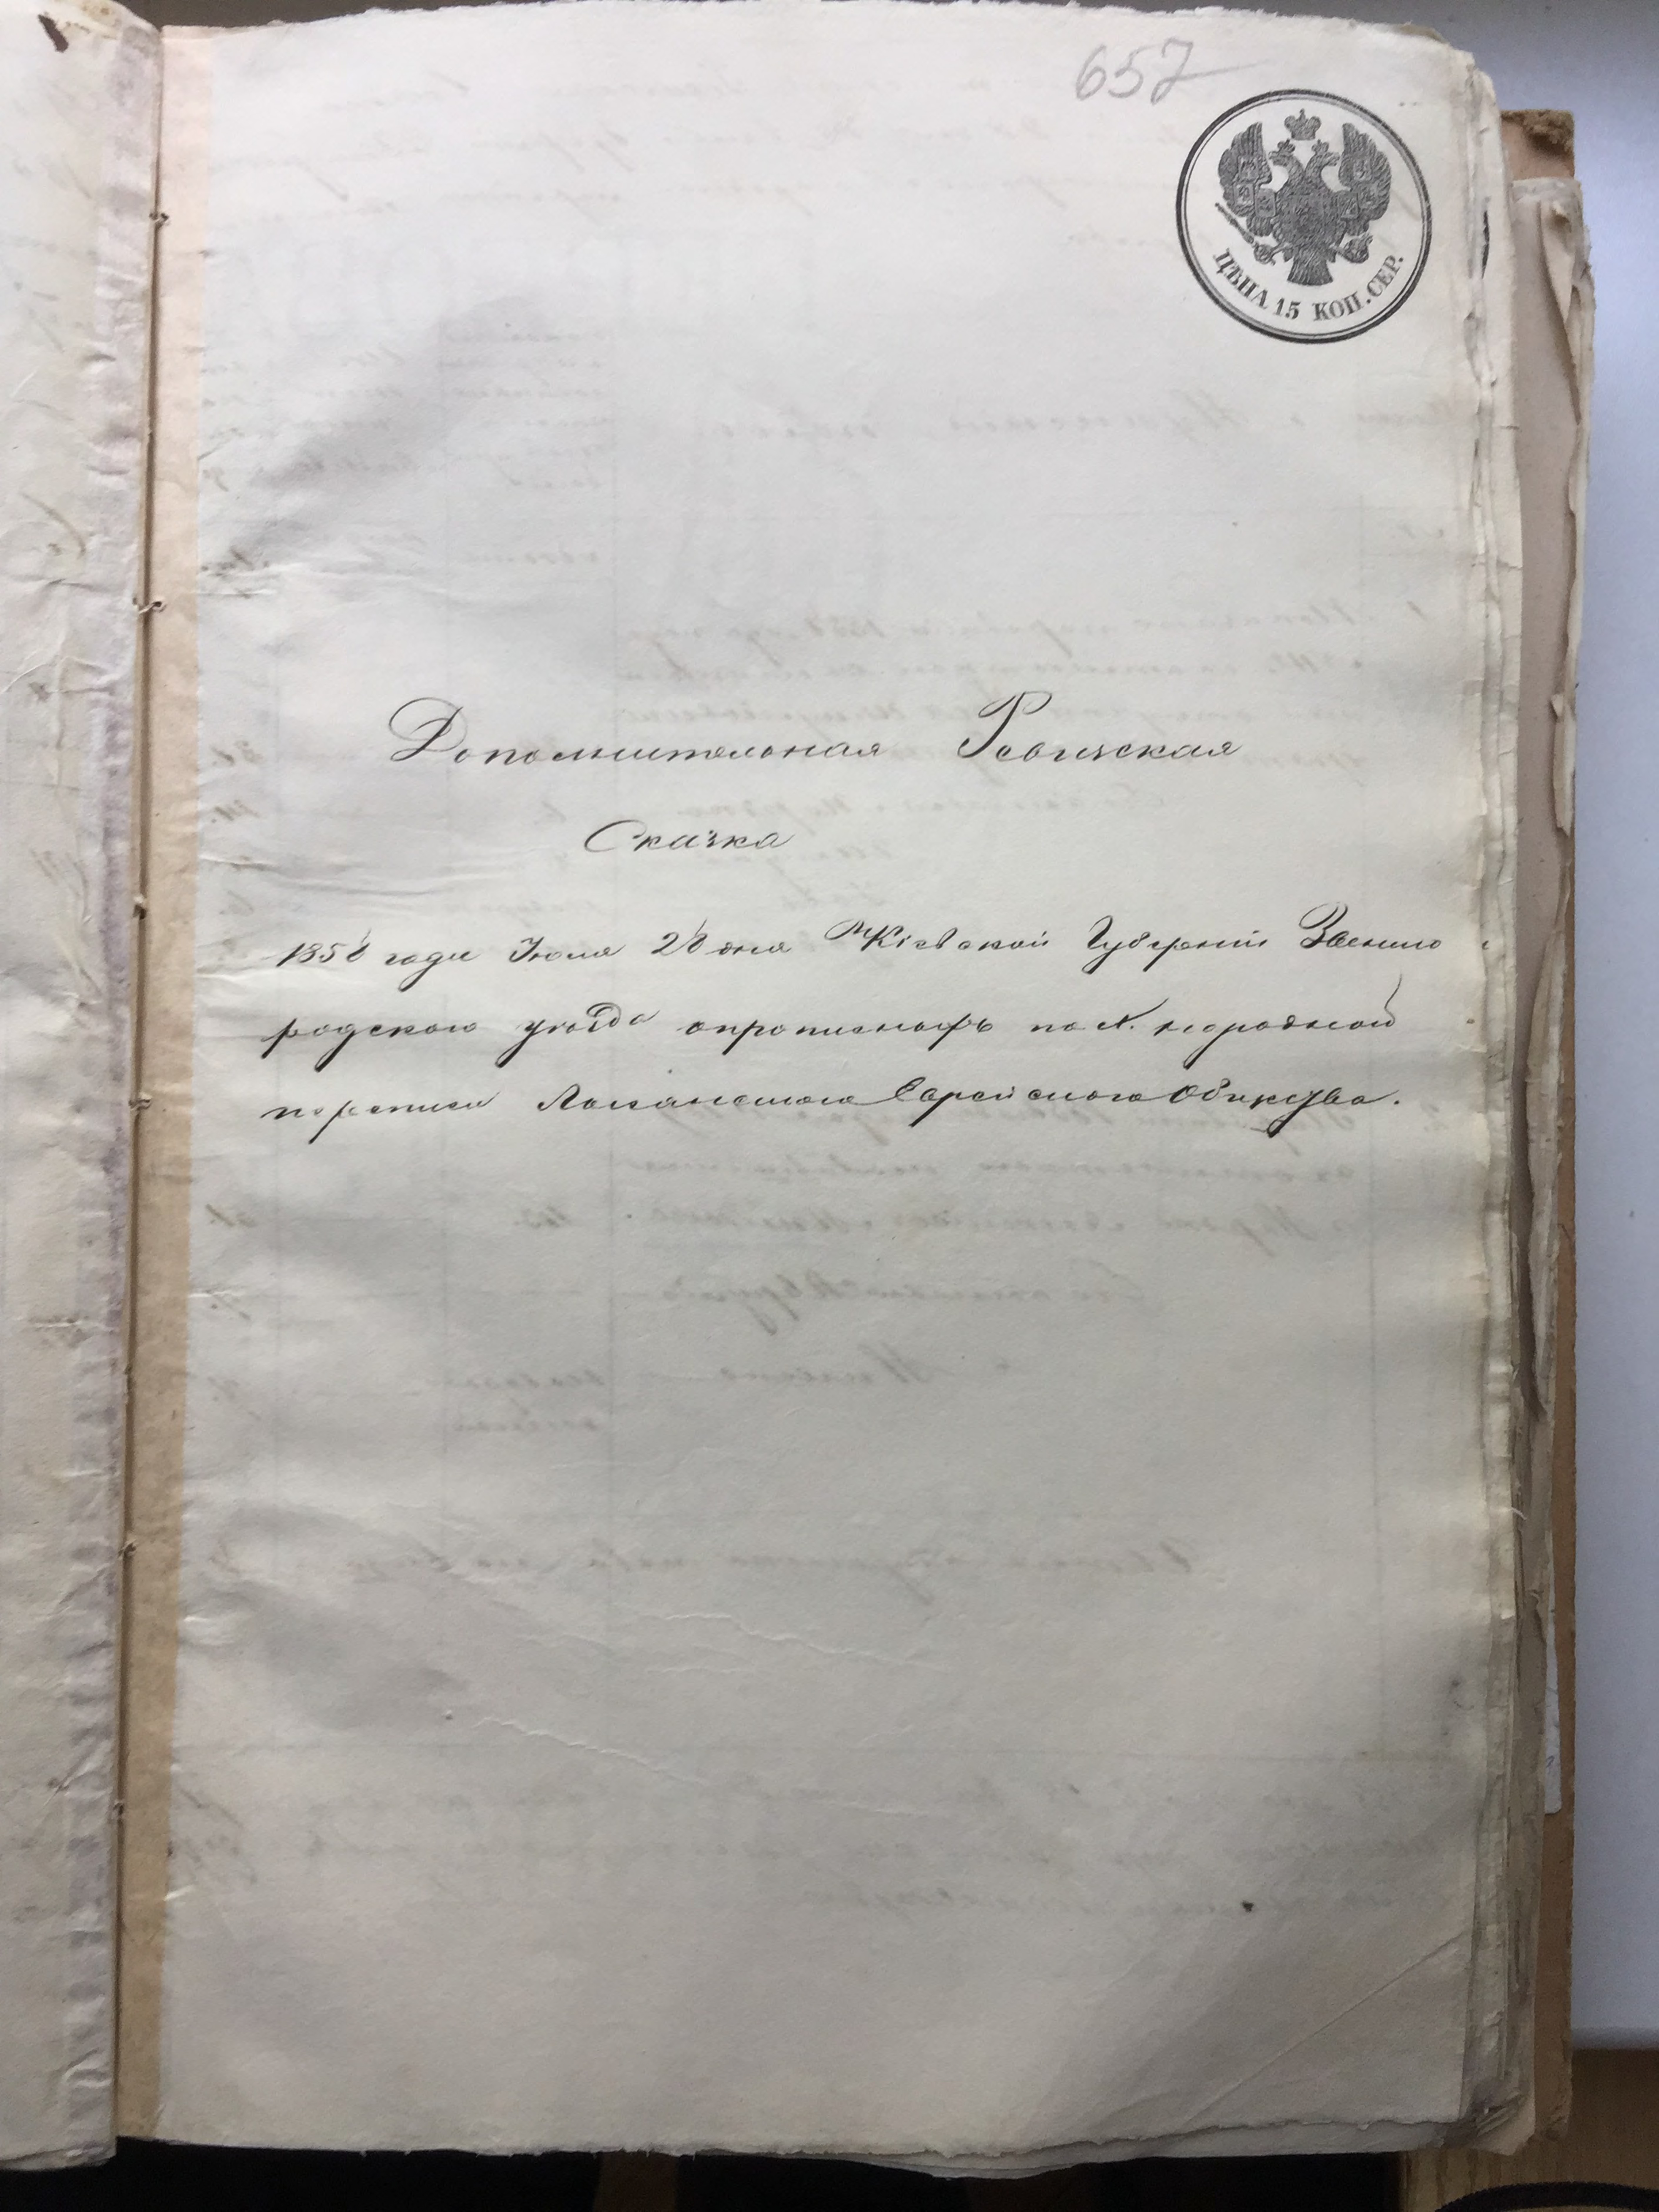 657
ЦѢНА 15 КОП. СЕР.
Дополнительная Ревизская
Сказка
1858 года Июля 28 дня Кіевской Губерніи Звениго
родскаго уѣзда о прописныхъ по X. народной
переписи Еврейскаго Общества.